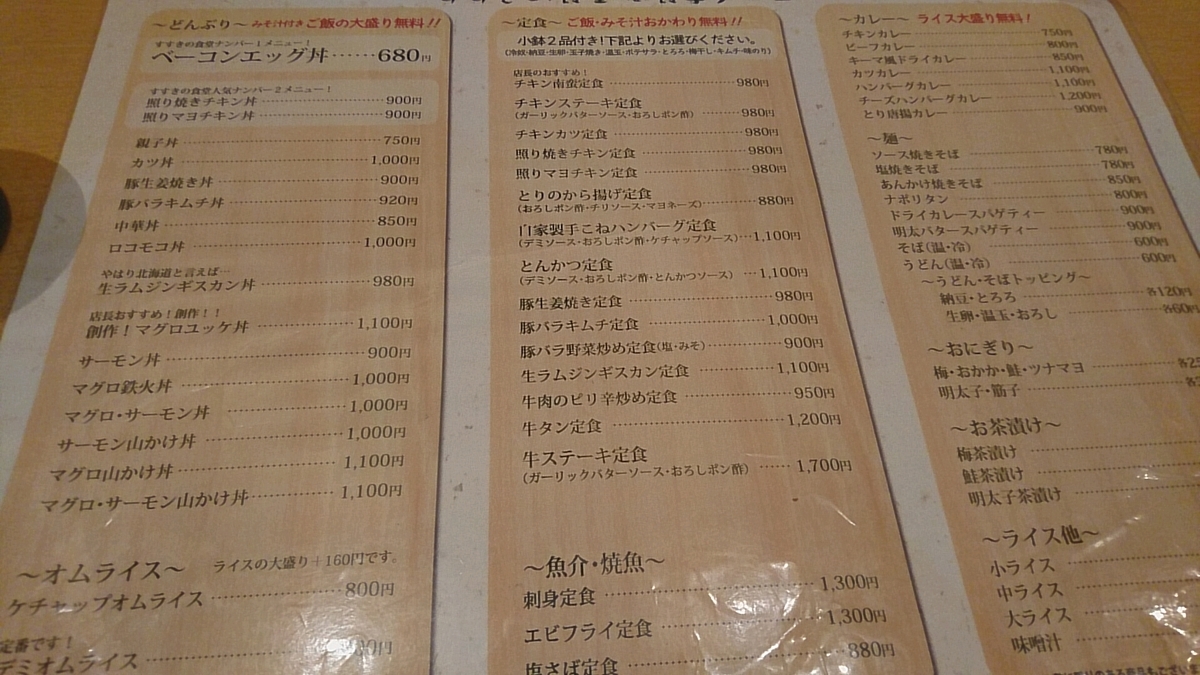 ～どんぶり～ みそ汁付き ご飯の大盛り無料!!
すすきの食堂ナンバー1メニュー!
ベーコンエッグ丼……680円
すすきの食堂人気ナンバー2メニュー!
照り焼きチキン丼……900円
照りマヨチキン丼……900円
親子丼……750円
カツ丼……1,000円
豚生姜焼き丼……900円
豚バラキムチ丼……920円
中華丼……850円
ロコモコ丼……1,000円
やはり北海道と言えば…
生ラムジンギスカン丼……980円
店長おすすめ!創作!!
創作!マグロユッケ丼……1,100円
サーモン丼……900円
マグロ鉄火丼……1,000円
マグロ・サーモン丼……1,000円
サーモン山かけ丼……1,000円
マグロ山かけ丼……1,100円
マグロ・サーモン山かけ丼……1,100円
～オムライス～ ライスの大盛り+160円です。
ケチャップオムライス……800円
定番です!
デミオムライス
～定食～ ご飯・みそ汁おかわり無料!!
小鉢2品付き!下記よりお選びください。
(冷奴・納豆・生卵・玉子焼き・温玉・ポテサラ・とろろ・梅干し・キムチ・味のり)
店長のおすすめ!
チキン南蛮定食……980円
チキンステーキ定食
(ガーリックバターソース・おろしポン酢)……980円
チキンカツ定食……980円
照り焼きチキン定食……980円
照りマヨチキン定食……980円
とりのから揚げ定食
(おろしポン酢・チリソース・マヨネーズ)……880円
自家製手こねハンバーグ定食
(デミソース・おろしポン酢・ケチャップソース)…1,100円
とんかつ定食
(デミソース・おろしポン酢・とんかつソース)…1,100円
豚生姜焼き定食……980円
豚バラキムチ定食……1,000円
豚バラ野菜炒め定食(塩・みそ)……900円
生ラムジンギスカン定食……1,100円
牛肉のピリ辛炒め定食……950円
牛タン定食……1,200円
牛ステーキ定食
(ガーリックバターソース・おろしポン酢)……1,700円
～魚介・焼魚～
刺身定食……1,300円
エビフライ定食……1,300円
塩さば定食……880円
～カレー～ ライス大盛り無料!
チキンカレー……750円
ビーフカレー……800円
キーマ風ドライカレー……850円
カツカレー……1,100円
ハンバーグカレー……1,100円
チーズハンバーグカレー……1,200円
とり唐揚カレー……900円
～麺～
ソース焼きそば……780円
塩焼きそば……780円
あんかけ焼きそば……850円
ナポリタン……800円
ドライカレースパゲティー……900円
明太バタースパゲティー……900円
そば(温・冷)……600円
うどん(温・冷)……600円
～うどん・そばトッピング～
納豆・とろろ……各120円
生卵・温玉・おろし……各60円
～おにぎり～
梅・おかか・鮭・ツナマヨ……各
明太子・筋子……各
～お茶漬け～
梅茶漬け
鮭茶漬け
明太子茶漬け
～ライス他～
小ライス
中ライス
大ライス
味噌汁